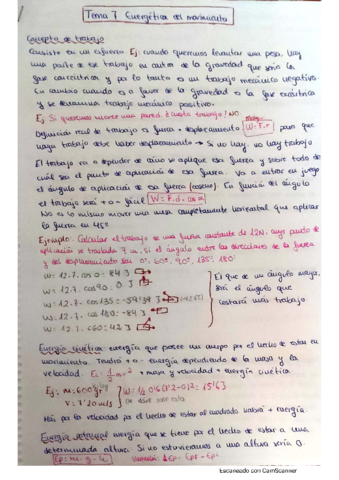 Tema 7 Energética del movimiento
Concepto de trabajo
Consiste en un esfuerzo Ej: cuando queremos levantar una pesa, hay
una parte de ese trabajo en contra de la gravedad que sería la
fase concéntrica y por lo tanto es un trabajo mecánico negativo.
En cambio cuando es a favor de la gravedad es la fase excéntrica
y se denomina trabajo mecánico positivo.
Ej Si queremos mover una pared ¿Cuesta trabajo? NO
Definición real de trabajo es fuerza · desplazamiento W = F.r para que
haya trabajo debe haber desplazamiento → Si no hay, no hay trabajo
El trabajo va a depender de cómo se aplique esa fuerza y sobre todo de
cuál sea el punto de aplicación de esa fuerza. Va a entrar en juego
el ángulo de aplicación de esa fuerza (coseno). En función del ángulo
el trabajo será + o - fácil W = F.d. cos α
No es lo mismo mover una masa completamente horizontal que aplicar
la fuerza en 45º
Ejemplo: Calcular el trabajo de una fuerza constante de 12N, cuyo punto de
aplicación se traslada 7 m, si el ángulo entre las direcciones de la fuerza
y del desplazamiento son 0º, 60º, 90º, 135º, 180º
W = 12.7. cos 0 = 84 J
W = 12.7. cos 90 = 0 J
W = 12.7. cos 135 = -59'39 J
W = 12.7. cos 180 = -84 J
W = 12.7. cos 60 = 42 J
El que de un ángulo mayor,
será el ángulo que
costará más trabajo
Energía cinética: energía que posee un cuerpo por el hecho de estar en
movimiento. Tendrá + o - energía dependiendo de la masa y la
velocidad. Ec = 1/2 m v² + masa y velocidad + energía cinética
Ej: m = 600 g
Más por la velocidad por el hecho de estar al cuadrado habrá + energía.
Energía potencial: energía que se tiene por el hecho de estar a una
determinada altura. Si no estuviéramos a una altura sería 0.
Ep = m · g · h
Escaneado con CamScanner